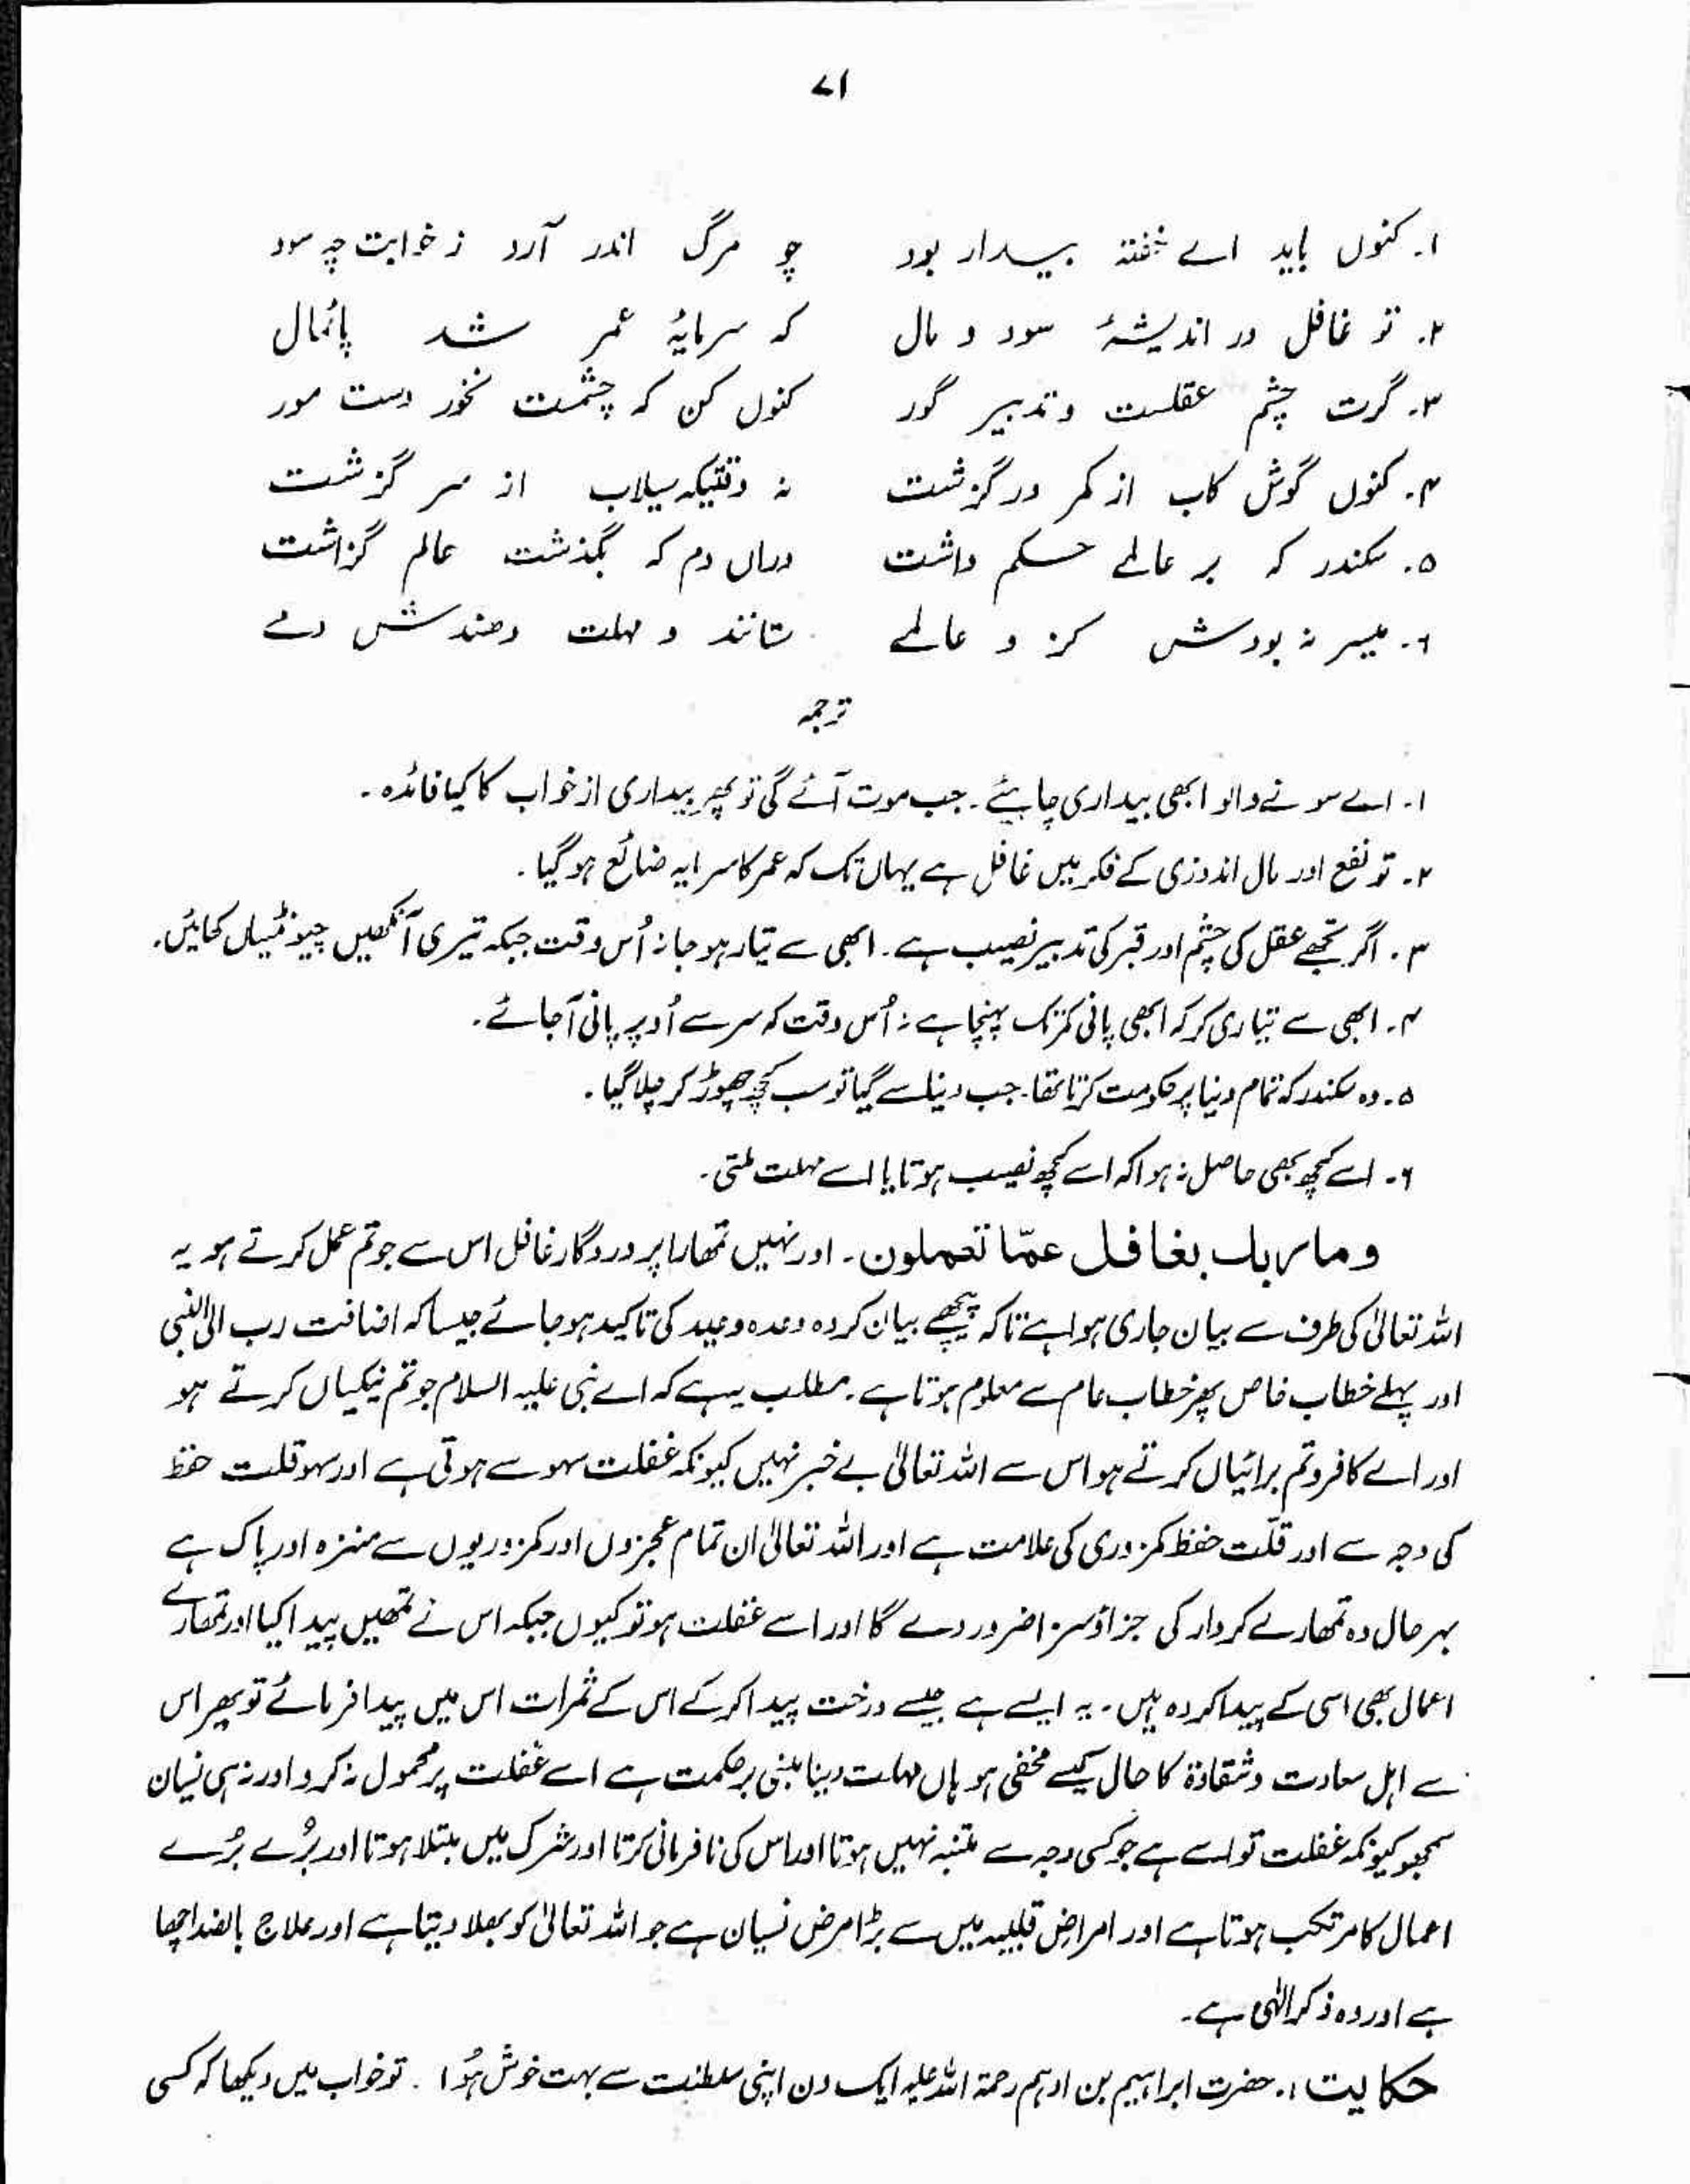 ۷۱
۱. کنوں باید اے خفتہ بیدار بود چو مرگ اندر آرد ز خوابت چہ سود
۲. تو غافل در اندیشۂ سود و مال کہ سرمایۂ عمر شد پائمال
۳. گرت چشم عقلست و تدبیر گور کنوں کن کہ چشمت نخور دست مور
۴. کنوں گوش کاب از کمر در گزشت نہ وقتیکہ سیلاب از سر گزشت
۵. سکندر کہ بر عالمے حکم داشت دراں دم کہ بگذشت عالم گزاشت
۶. میسر نہ بودش کز و عالمے ستانند و مہلت دہندش دمے
ترجمہ
۱. اے سونے والو ابھی بیداری چاہئے۔ جب موت آئے گی تو پھر بیداری از خواب کا کیا فائدہ۔
۲. تو نفع اور مال اندوزی کے فکر میں غافل ہے یہاں تک کہ عمر کا سرمایہ ضائع ہو گیا۔
۳. اگر تجھے عقل کی چشم اور قبر کی تدبیر نصیب ہے۔ ابھی سے تیار ہو جا نہ اُس وقت جبکہ تیری آنکھیں چیونٹیاں کھائیں۔
۴. ابھی سے تیاری کر کہ ابھی پانی کمر تک پہنچا ہے نہ اُس وقت کہ سر سے اُوپر پانی آ جائے۔
۵. وہ سکندر کہ تمام دنیا پر حکومت کرتا تھا۔ جب دنیا سے گیا تو سب کچھ چھوڑ کر چلا گیا۔
۶. اسے کچھ بھی حاصل نہ ہوا کہ اسے کچھ نصیب ہوتا یا اسے مہلت ملتی۔
وما ربك بغافل عمّا تعملون۔ اور نہیں تمھارا پروردگار غافل اس سے جو تم عمل کرتے ہو یہ
اللہ تعالیٰ کی طرف سے بیان جاری ہوا ہے تاکہ پیچھے بیان کردہ وعدہ وعید کی تاکید ہو جائے جیسا کہ اضافت رب الی النبی
اور پہلے خطاب خاص پھر خطاب عام سے معلوم ہوتا ہے۔ مطلب یہ ہے کہ اے نبی علیہ السلام جو تم نیکیاں کرتے ہو
اور اے کافرو تم برائیاں کرتے ہو اس سے اللہ تعالیٰ بے خبر نہیں کیونکہ غفلت سہو سے ہوتی ہے اور سہو قلت حفظ
کی وجہ سے اور قلّت حفظ کمزوری کی علامت ہے اور اللہ تعالیٰ ان تمام عجزوں اور کمزوریوں سے منزہ اور پاک ہے
بہر حال وہ تمھارے کردار کی جزاؤ سزا ضرور دے گا اور اسے غفلت ہو تو کیوں جبکہ اس نے تمھیں پیدا کیا اور تمھارے
اعمال بھی اسی کے پیدا کردہ ہیں۔ یہ ایسے ہے جیسے درخت پیدا کر کے اس کے ثمرات اس میں پیدا فرمائے تو پھر اس
سے اہل سعادت و شقاوۃ کا حال کیسے مخفی ہو ہاں مہلت دینا مبنی بر حکمت ہے اسے غفلت پر محمول نہ کرو اور نہ ہی نسیان
سمجھو کیونکہ غفلت تو اسے ہے جو کسی وجہ سے متنبہ نہیں ہوتا اور اس کی نافرمانی کرتا اور شرک میں مبتلا ہوتا اور بُرے بُرے
اعمال کا مرتکب ہوتا ہے اور امراضِ قلبیہ میں سے بڑا مرض نسیان ہے جو اللہ تعالیٰ کو بھلا دیتا ہے اور علاج بالضد اچھا
ہے اور وہ ذکر الٰہی ہے۔
حکایت ۱. حضرت ابراہیم بن ادہم رحمۃ اللہ علیہ ایک دن اپنی سلطنت سے بہت خوش ہُوا۔ تو خواب میں دیکھا کہ کسی